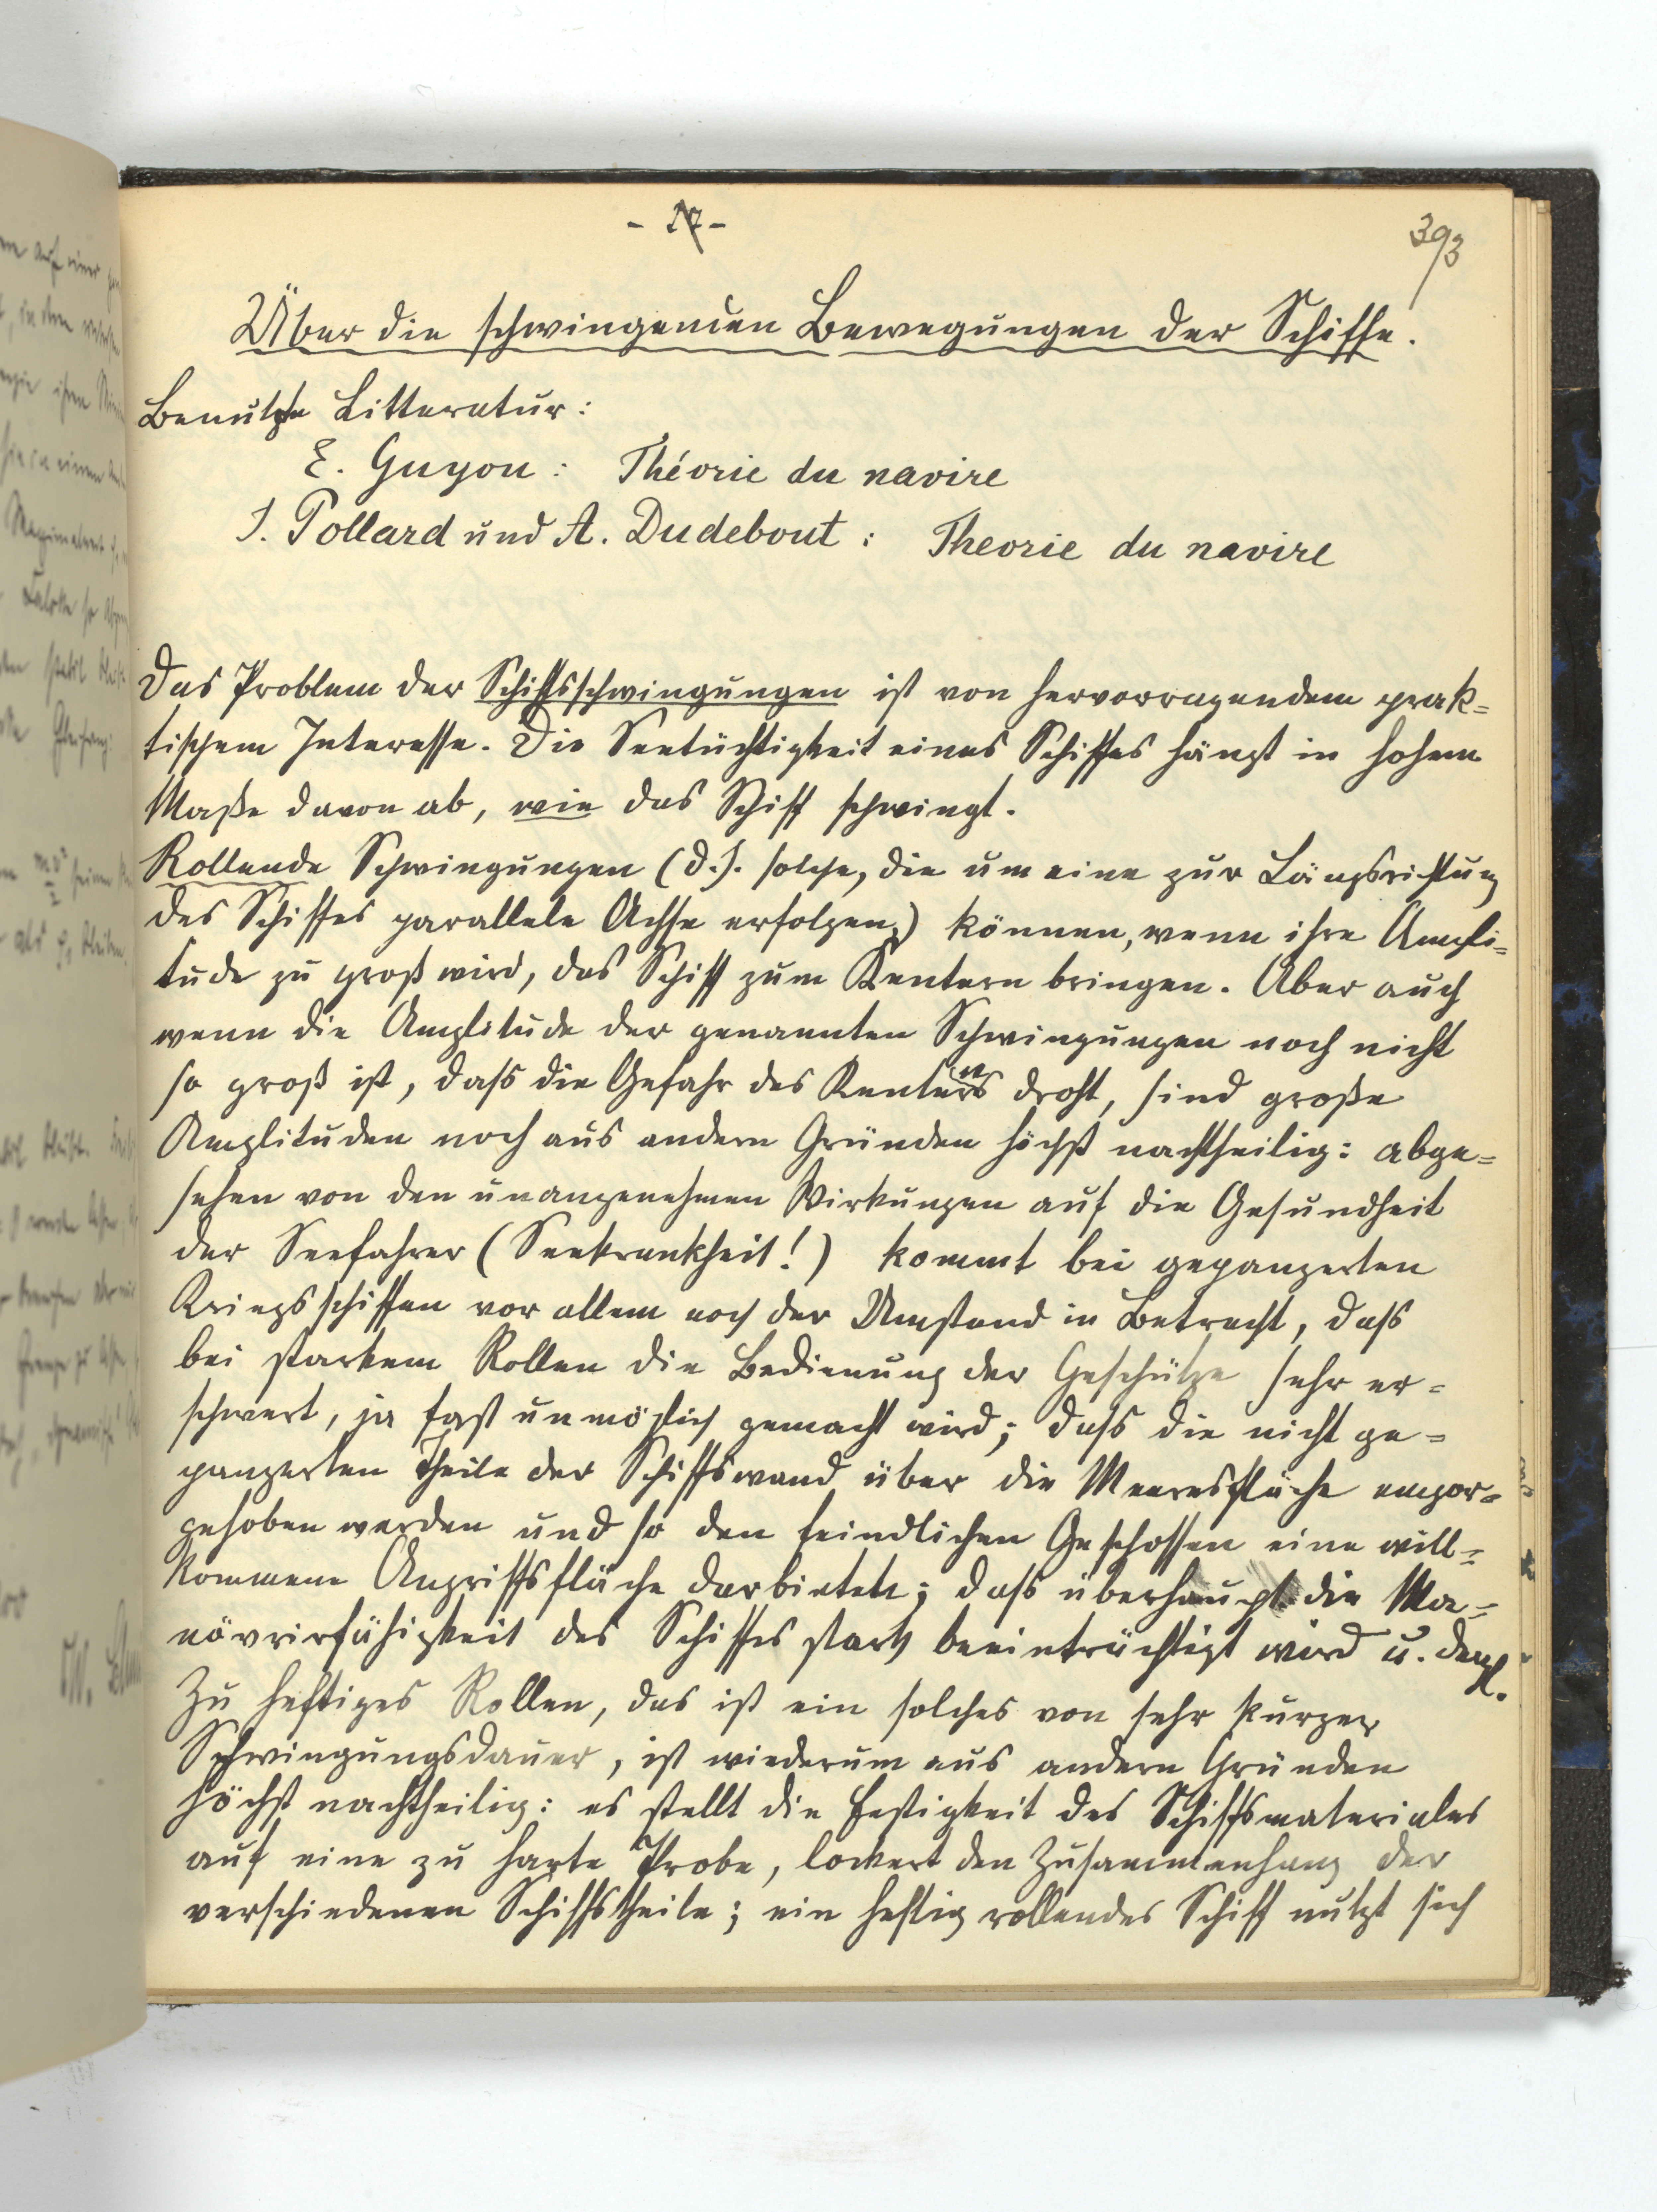 - 17 -
393
Über die schwingenden Bewegungen der Schiffe.
Benutzte Litteratur:
E. Guyou: Théorie du navire
J. Pollard und A. Dudebout: Theorie du navire
Das Problem der Schiffsschwingungen ist von hervorragendem prak=
tischem Interesse. Die Seetüchtigkeit eines Schiffes hängt in hohem
Maße davon ab, wie das Schiff schwingt.
Rollende Schwingungen (d. h. solche, die um eine zur Längsrichtung
des Schiffes parallele Achse erfolgen,) können, wenn ihre Ampli=
tude zu groß wird, das Schiff zum Kentern bringen. Aber auch
wenn die Amplitude der genannten Schwingungen noch nicht
so groß ist, dass die Gefahr des Kenterns droht, sind große
Amplituden noch aus andern Gründen höchst nachtheilig: abge=
sehen von den unangenehmen Wirkungen auf die Gesundheit
der Seefahrer (Seekrankheit!) kommt bei gepanzerten
Kriegsschiffen vor allem noch der Umstand in Betracht, dass
bei starkem Rollen die Bedienung der Geschütze sehr er=
schwert, ja fast unmöglich gemacht wird; dass die nicht ge=
panzerten Theile der Schiffswand über die Meeresfläche empor=
gehoben werden und so den feindlichen Geschossen eine will=
kommene Angriffsfläche darbieten; dass überhaupt die Ma=
növrirfähigkeit des Schiffes stark beeinträchtigt wird u. dergl.
Zu heftiges Rollen, das ist ein solches von sehr kurzer
Schwingungsdauer, ist wiederum aus andern Gründen
höchst nachtheilig: es stellt die Festigkeit des Schiffsmateriales
auf eine zu harte Probe, lockert den Zusammenhang der
verschiedenen Schiffstheile; ein heftig rollendes Schiff nutzt sich